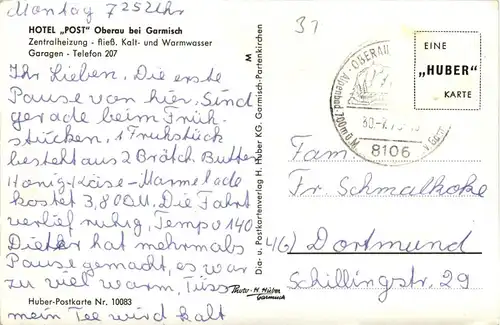 Montag 7 25 Uhr
HOTEL „POST" Oberau bei Garmisch
Zentralheizung - fließ. Kalt- und Warmwasser
Garagen - Telefon 207
Ihr Lieben. Die erste
Pause von hier. Sind
gerade beim Früh-
stücken, 1 Frühstück
besteht aus 2 Brötch. Butter
Honig-Käse-Marmelade
kostet 3,80 DM. Die Fahrt
verlief ruhig, Tempo 140
Dieter hat mehrmals
Pause gemacht, es war
zu viel warm, Tüss
mein Tee wird kalt
Huber-Postkarte Nr. 10083
M
Dia- u. Postkartenverlag H. Huber KG. Garmisch-Partenkirchen
Photo-H. Huber
Garmisch
31
OBERAU
8106
EINE
„HUBER"
KARTE
Fam.
Fr. Schmalkoke
Dortmund
Schillingstr. 29